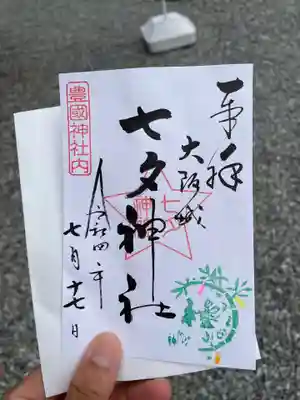 奉拝
大阪城
七夕神社
七夕神
令和四年
七月十七日
豊國神社内